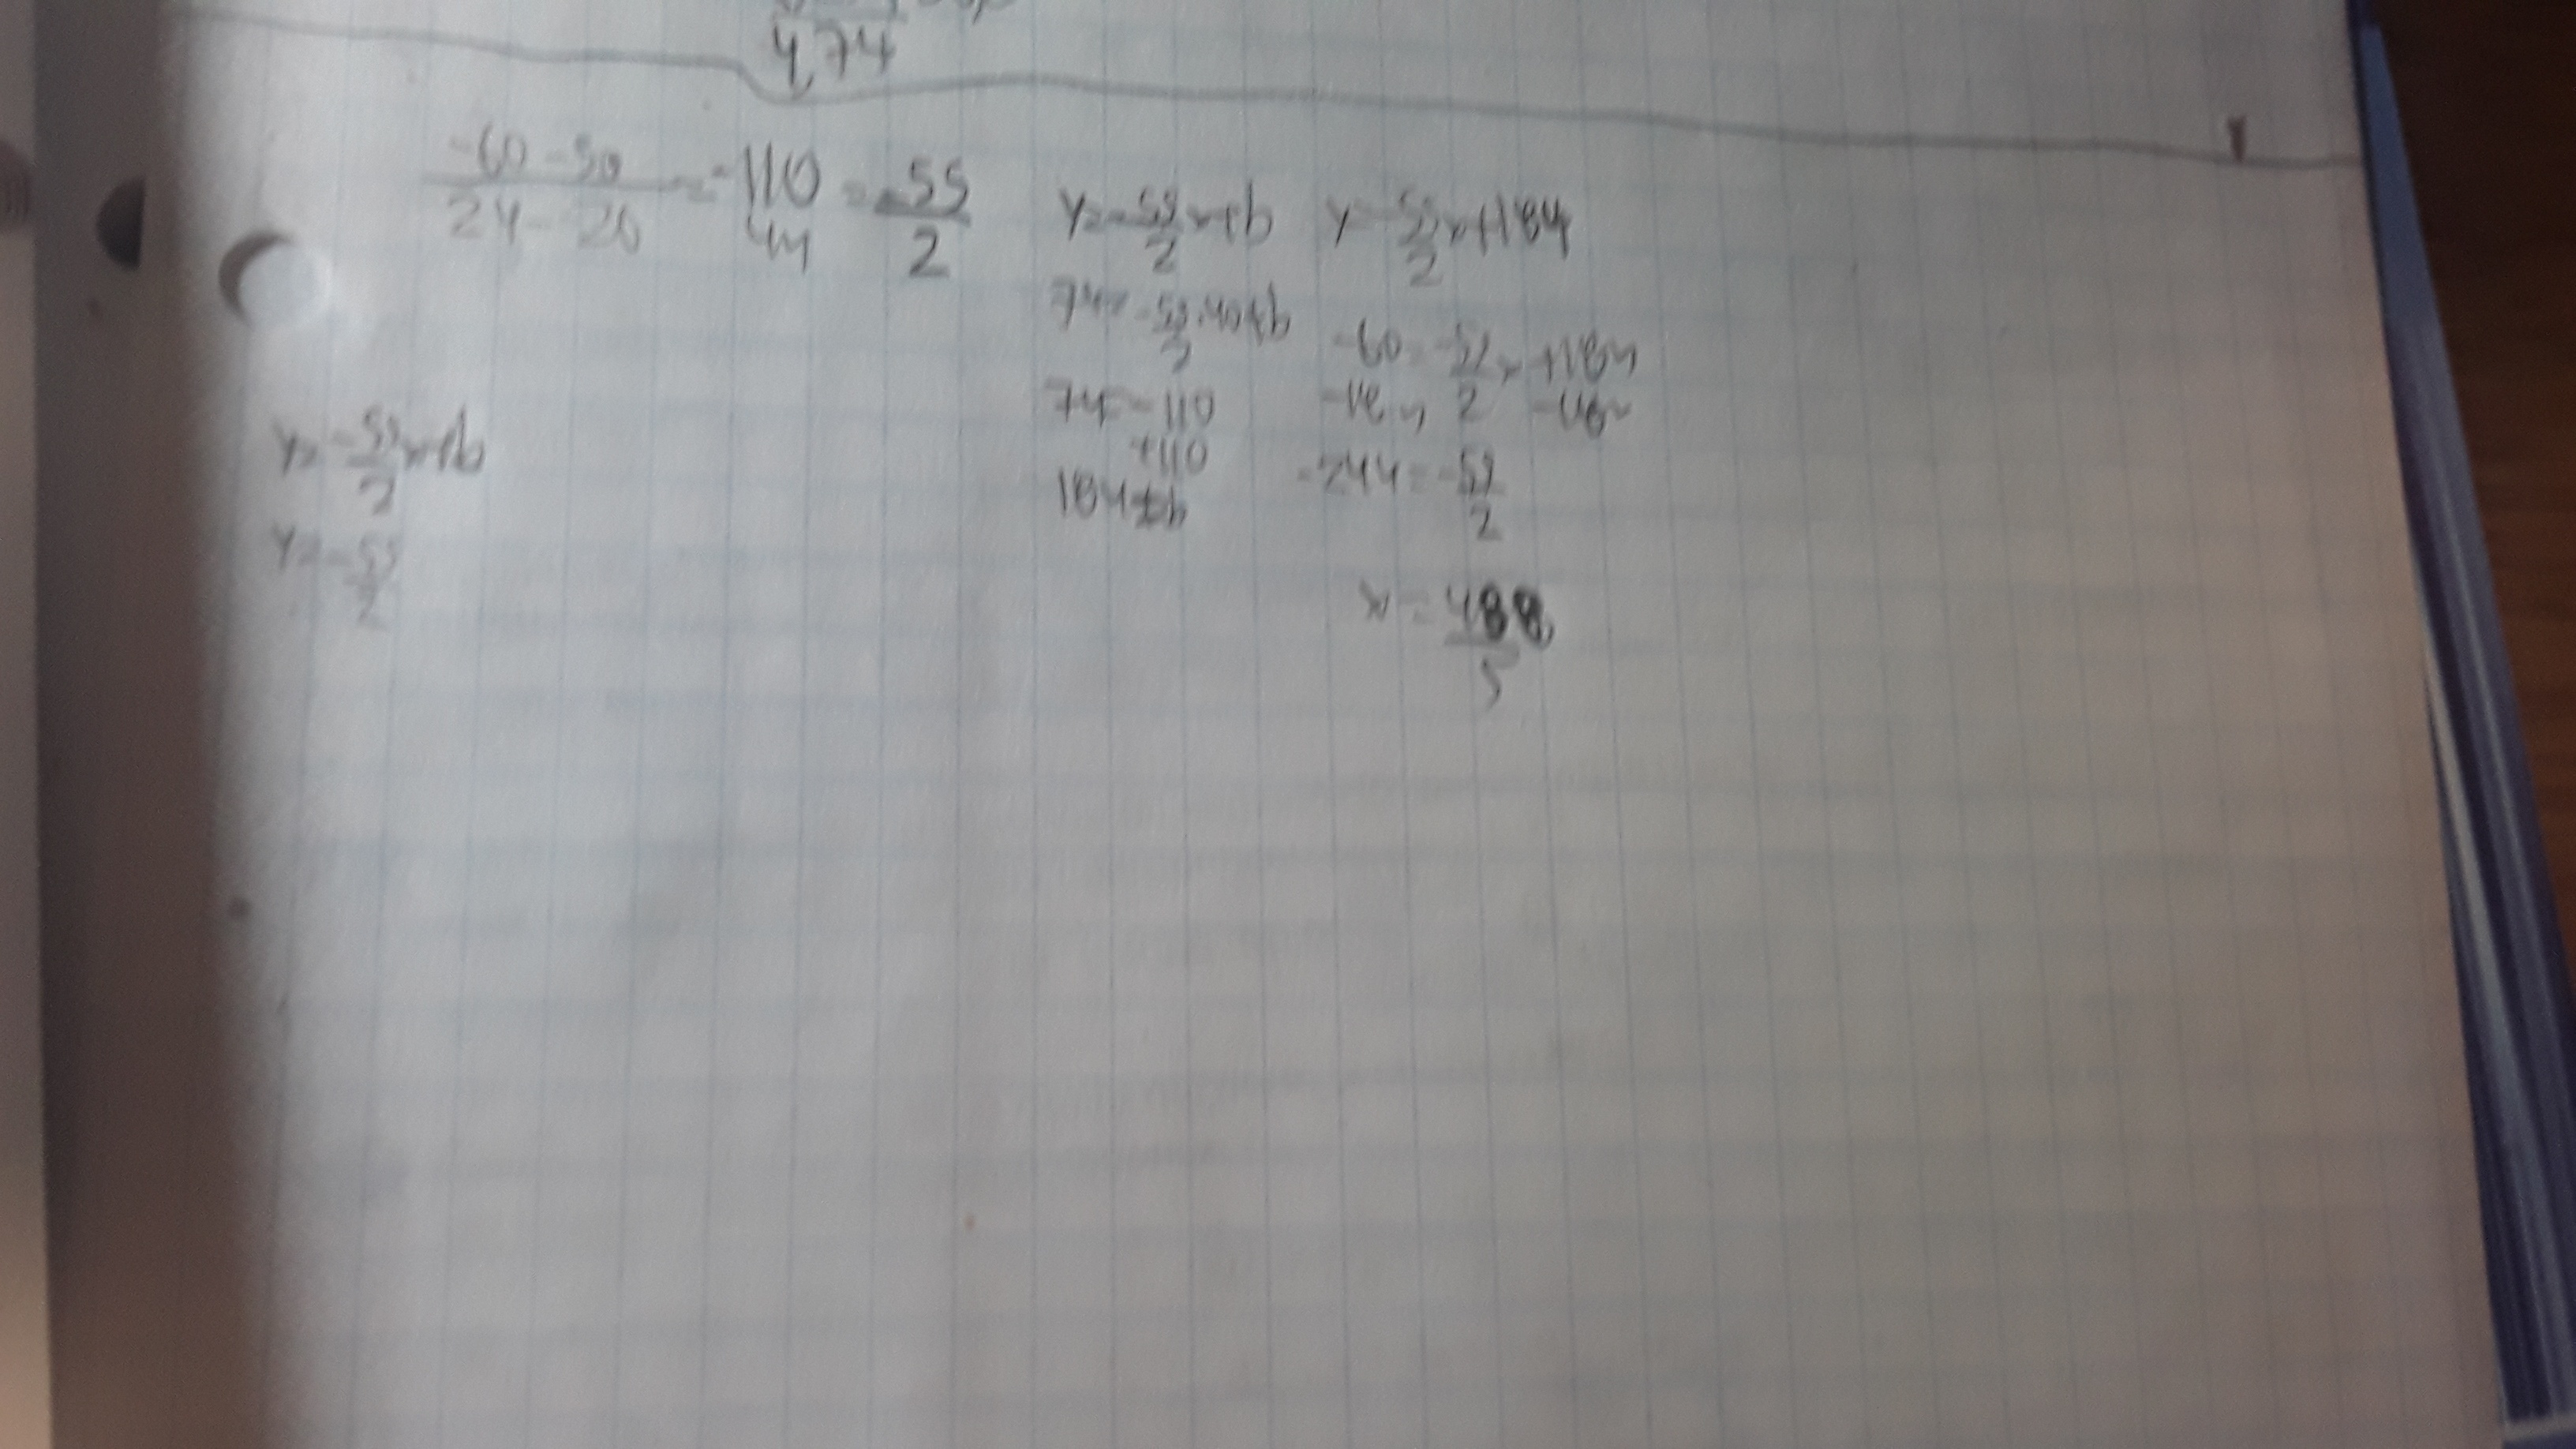 4,74
-60 - 50 / 24 - 20 = -110 / 44 = -55 / 2
y = -55/2 x + b
y = -55/2
y = -55/2 x + b
74 = -55/2 · 40 + b
74 = -110
+110
184 = b
y = -55/2 x + 184
-60 = -55/2 x + 184
-184 -184
-244 = -55/2
x = 488/5